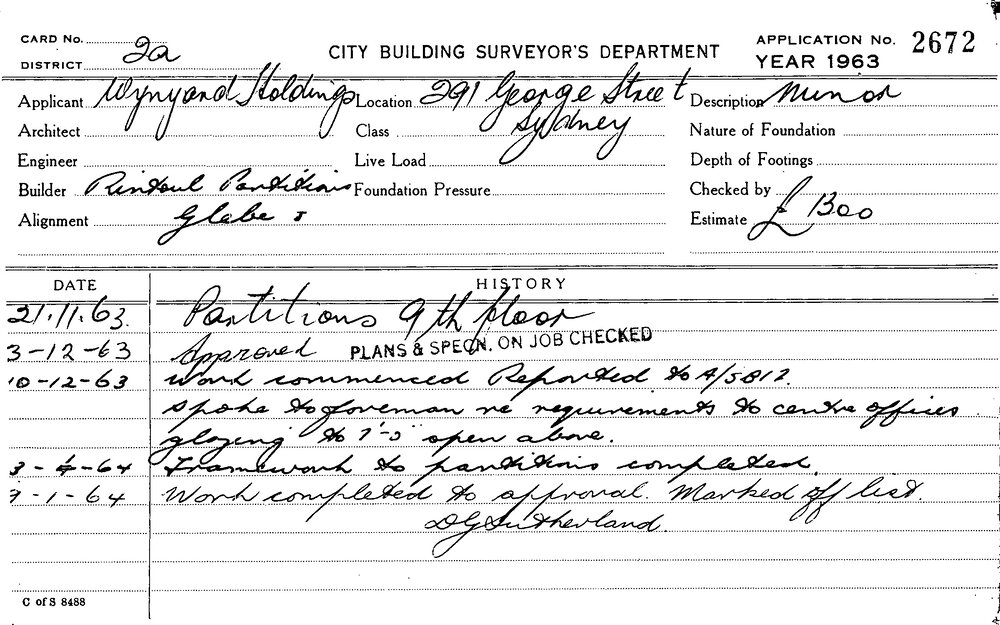 CARD No. 2a
CITY BUILDING SURVEYOR'S DEPARTMENT
APPLICATION No. 2672
DISTRICT
YEAR 1963
Applicant Wynyard Holdings Location 291 George Street Description Minor
Architect Class Sydney Nature of Foundation
Engineer Live Load Depth of Footings
Builder Rintoul Partitions Foundation Pressure Checked by
Alignment Glebe Estimate £ 1300
DATE HISTORY
21.11.63. Partitions 9th floor
3-12-63 Approved PLANS & SPECN. ON JOB CHECKED
10-12-63 Work commenced Reported to A/SB12.
Spoke to foreman re requirements to centre offices
glazing to 7'-0" open above.
3-1-64 Framework to partitions completed.
7-1-64 Work completed to approval. Marked off list
DGSutherland.
C of S 8488